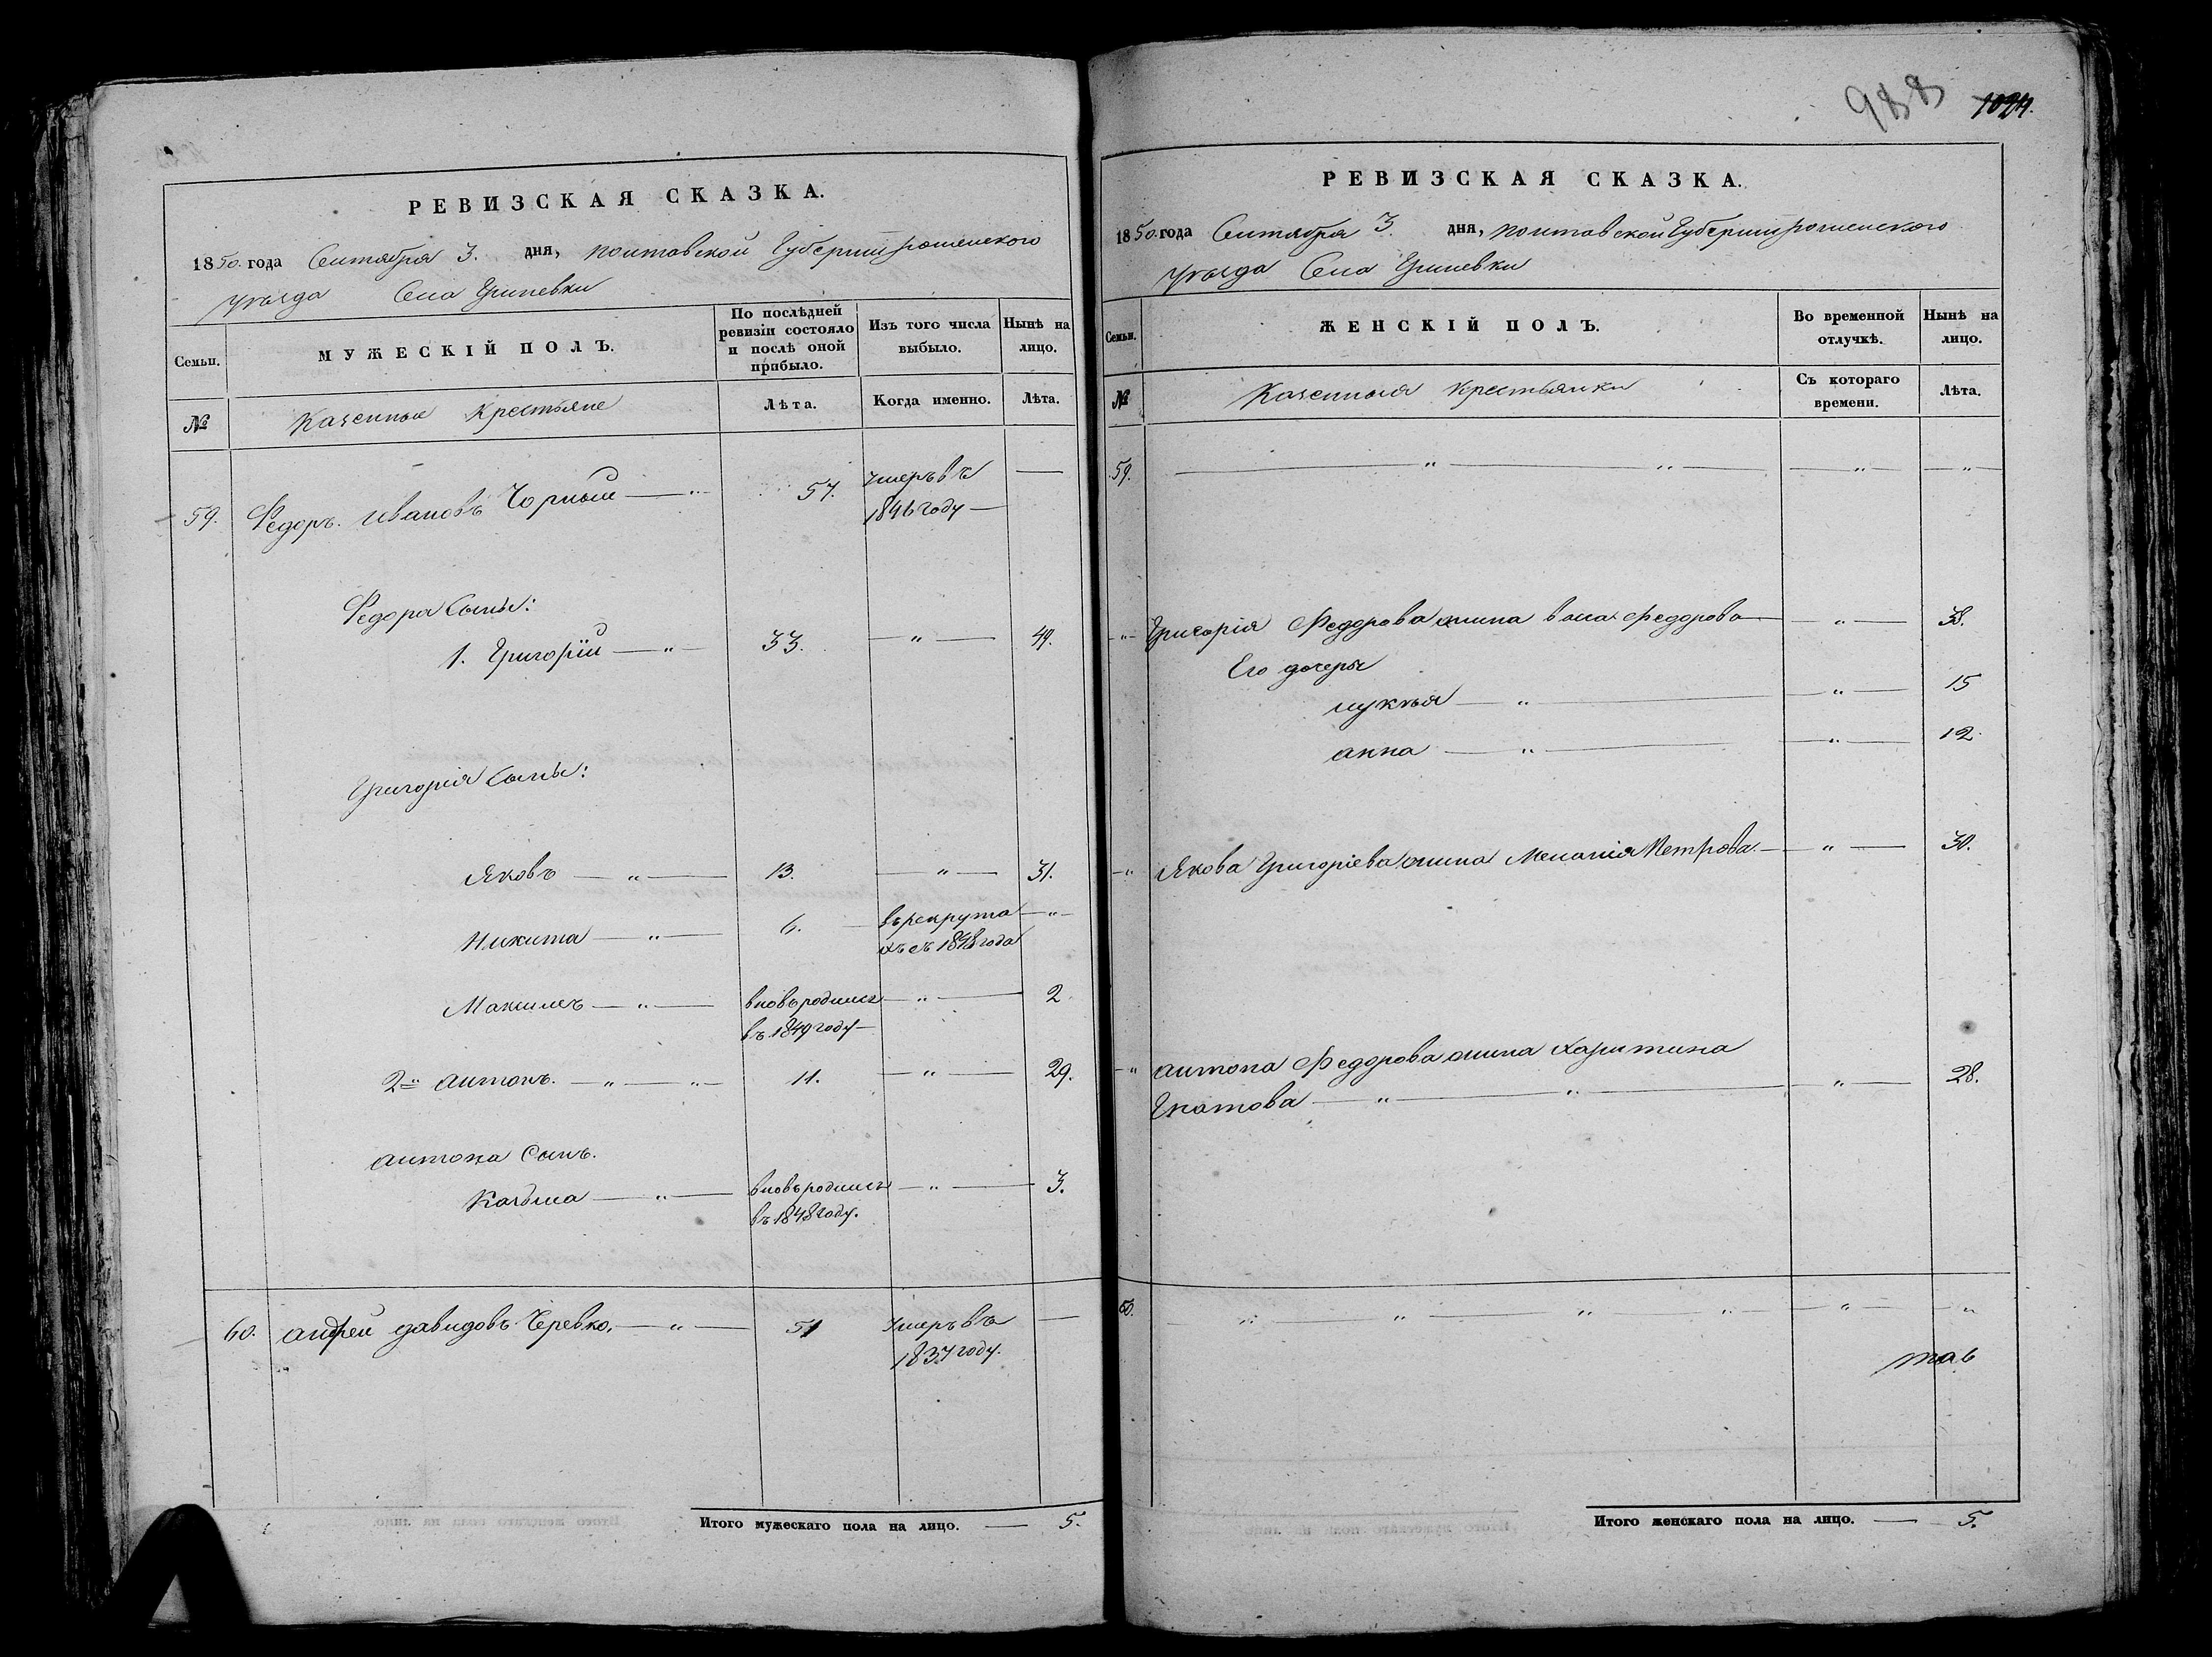 988 1024.
РЕВИЗСКАЯ СКАЗКА.
1850. года Сентября 3. дня, полтавской Губернiи роменского
уѣзда Села Грипевки
Семьи. МУЖЕСКІЙ ПОЛЪ. По послѣдней ревизіи состояло и послѣ оной прибыло. Изъ того числа выбыло. Нынѣ на лицо.
№ Казенные Крестьяне Лѣта. Когда именно. Лѣта.
59. Федоръ Ивановъ Чорный — 57. умеръ въ —
1846 году —
Федора Сыны:
1. Григорiй — " — 33. — " — 49.
Григорiя Сыны:
Яковъ — " — 13. — " — 31.
Никита — " — 6. въ рекрута — " —
хъ съ 1848 года
Максимъ — " — вновьродился — " — 2
въ 1849 году —
2й антонъ. — " — " — 11. — " — 29.
антона Сынъ.
Козьма — " — вновьродился — " — 3.
въ 1848 году.
60. андрей давидовъ Черевко. — " — 51 умеръ въ —
1837 году.
Итого мужескаго пола на лицо. — 5.
РЕВИЗСКАЯ СКАЗКА.
1850. года Сентября 3. дня, полтавской Губернiи роменского
уѣзда Села Грипевки
Семьи. ЖЕНСКІЙ ПОЛЪ. Во временной отлучкѣ. Нынѣ на лицо.
№ Казенныя Крестьянки Съ котораго времени. Лѣта.
59. — " — " — — " — — " —
— " Григорiя Федорова жина Федорова — — " — 38.
Его дочеры
лукѣя — " — — " — 15
анна — " — — " — 12.
— " Якова Григорiева жина Меланiя Петрова. — — " — 30.
— " антона Федорова жина Харитина
Игнатова — " — " — — " — 28.
60. " — " — " — " — " — "
Итого женскаго пола на лицо. — 5.